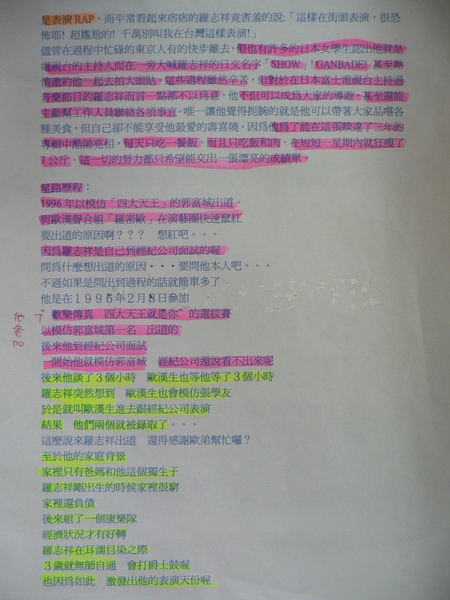 是表演RAP，而平常看起來痞痞的羅志祥竟害羞的說:「這樣在街頭表演，很恐
怖耶! 超尷尬的! 千萬別叫我在台灣這樣表演!」
儘管在過程中忙碌的東京人有的快步離去，但也有許多的日本女學生認出他就是
電視台的主持人而在一旁大喊羅志祥的日文名字「SHOW ! !GANBADE! 甚至熱
情邀約他一起去拍大頭貼，這些過程雖然辛苦，但對於在日本富士電視台主持過
音樂節目的羅志祥而言一點都不以為意，他不但可以成為大家的導遊，甚至還能
主動幫工作人員聯絡各項事宜。唯一讓他覺得扼腕的就是他可以帶著大家品嚐各
種美食，但自己卻不能享受他最愛的壽喜燒，因為他為了能在這張睽違了三年的
專輯中酷帥亮相，每天只吃一餐飯，而且只吃飯和肉，在短短一星期內就狂瘦了
7公斤。這一切的努力都只希望能交出一張漂亮的成績單。
星路歷程：
1996年以模仿「四大天王」的郭富城出道。
與歐漢聲合組「羅密歐」在演藝圈快速竄紅
要出道的原因啊？？？　想紅吧．．．
因為羅志祥是自己到經紀公司面試的喔
問為什麼想出道的原因．．．要問他本人吧．．．
不過如果是問出到過程的話就簡單多了
他是在1996年2月8日參加
他參加了
"歡樂傳真　四大天王就是你"的選拔賽
以模仿郭富城第一名　出道的
後來他到經紀公司面試
一開始他就模仿郭富城　經紀公司還說看不出來呢
後來他談了3個小時　歐漢生也等他等了3個小時
羅志祥突然想到　歐漢生也會模仿張學友
於是就叫歐漢生進去跟經紀公司表演
結果　他們兩個就被錄取了．．．
這麼說來羅志祥出道　還得感謝歐弟幫忙囉？
至於他的家庭背景
家裡只有爸媽和他這個獨生子
羅志祥剛出生的時候家裡很窮
家裡還負債
後來組了一個康樂隊
經濟狀況才有好轉
羅志祥在耳濡目染之際
3歲就無師自通　會打爵士鼓喔
也因為如此　激發出他的表演天份喔